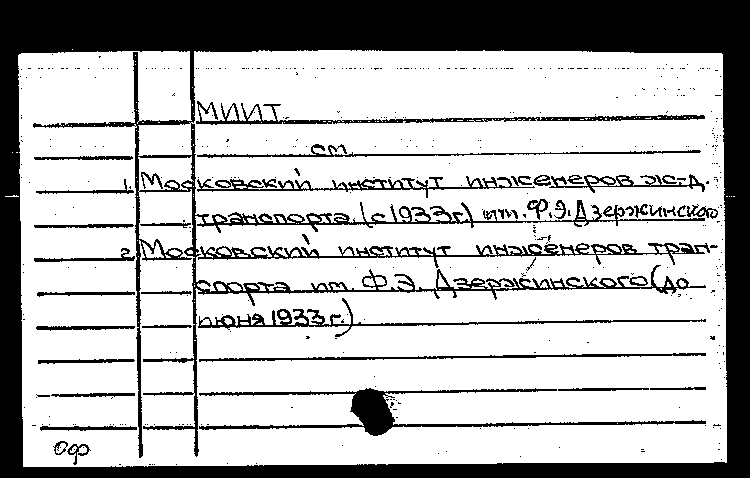 МИИТ
см.
1. Московский институт инженеров ж.-д.
транспорта (с 1933г.) им. Ф.Э. Дзержинского
2. Московский институт инженеров тран-
спорта им. Ф.Э. Дзержинского (до
июня 1933 г.)
Оф